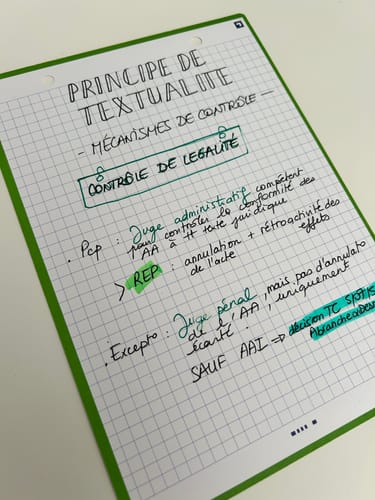 PRINCIPE DE
TEXTUALITE
- MÉCANISMES DE CONTRÔLE -
CONTRÔLE DE LEGALITÉ
. Pcp : Juge administratif compétent
pour contrôler la conformité des
AA à tt texte juridique
> REP : annulation + rétroactivité des
effets
de l'acte
. Excepto : Juge pénal
de l'AA, mais pas d'annulato
écarté, uniquement
SAUF AAI => décision TC